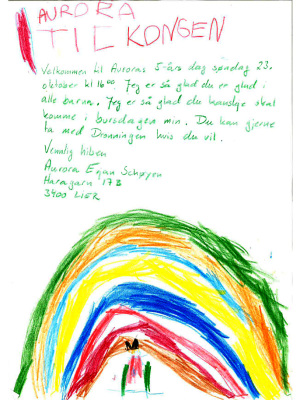 AURORA
TIL KONGEN
Velkommen til Auroras 5-års dag søndag 23.
oktober kl 16⁰⁰ Jeg er så glad du er glad i
alle barna. Jeg er så glad du kanskje skal
komme i bursdagen min. Du kan gjerne
ta med Dronningen hvis du vil.
Vennlig hilsen
Aurora Egan Schøyen
Haragarn 17B
3400 LIER